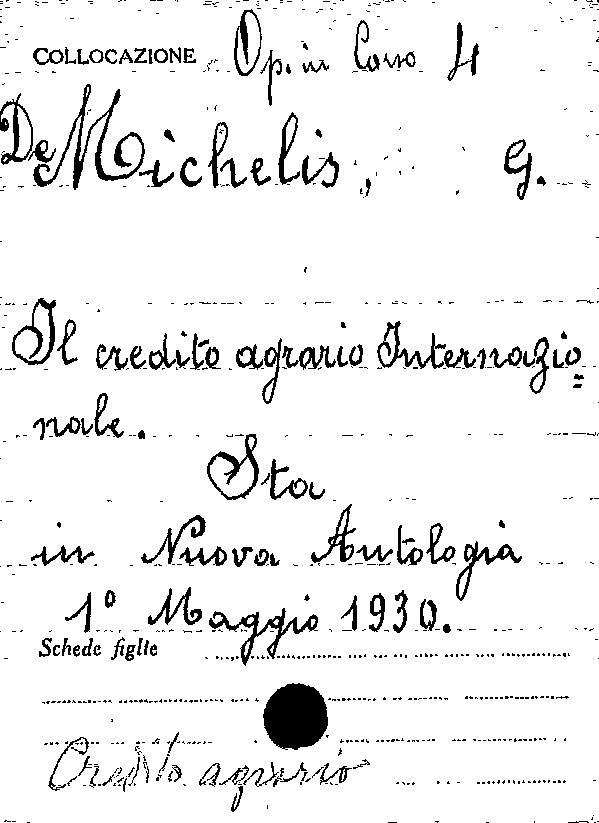 COLLOCAZIONE Op. in Corso 4
De Michelis, G.
Il credito agrario Internazio=
nale.
Sta
in Nuova Antologia
1° Maggio 1930.
Schede figlie
Credito agrario